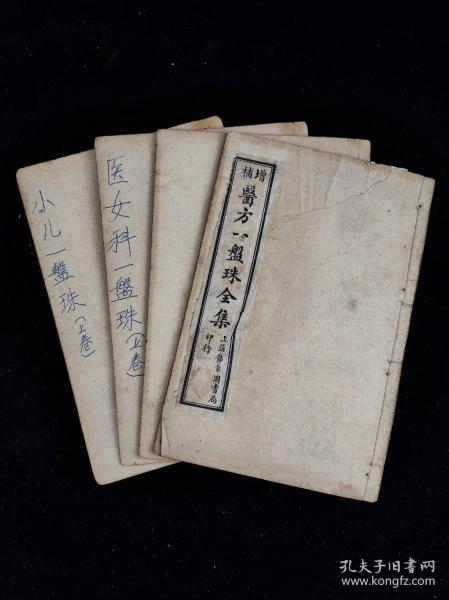 增補
醫方一盤珠全集
上海錦章圖書局
印行
医女科一盤珠(上卷)
小儿一盤珠(上卷)
孔夫子旧书网
www.kongfz.com